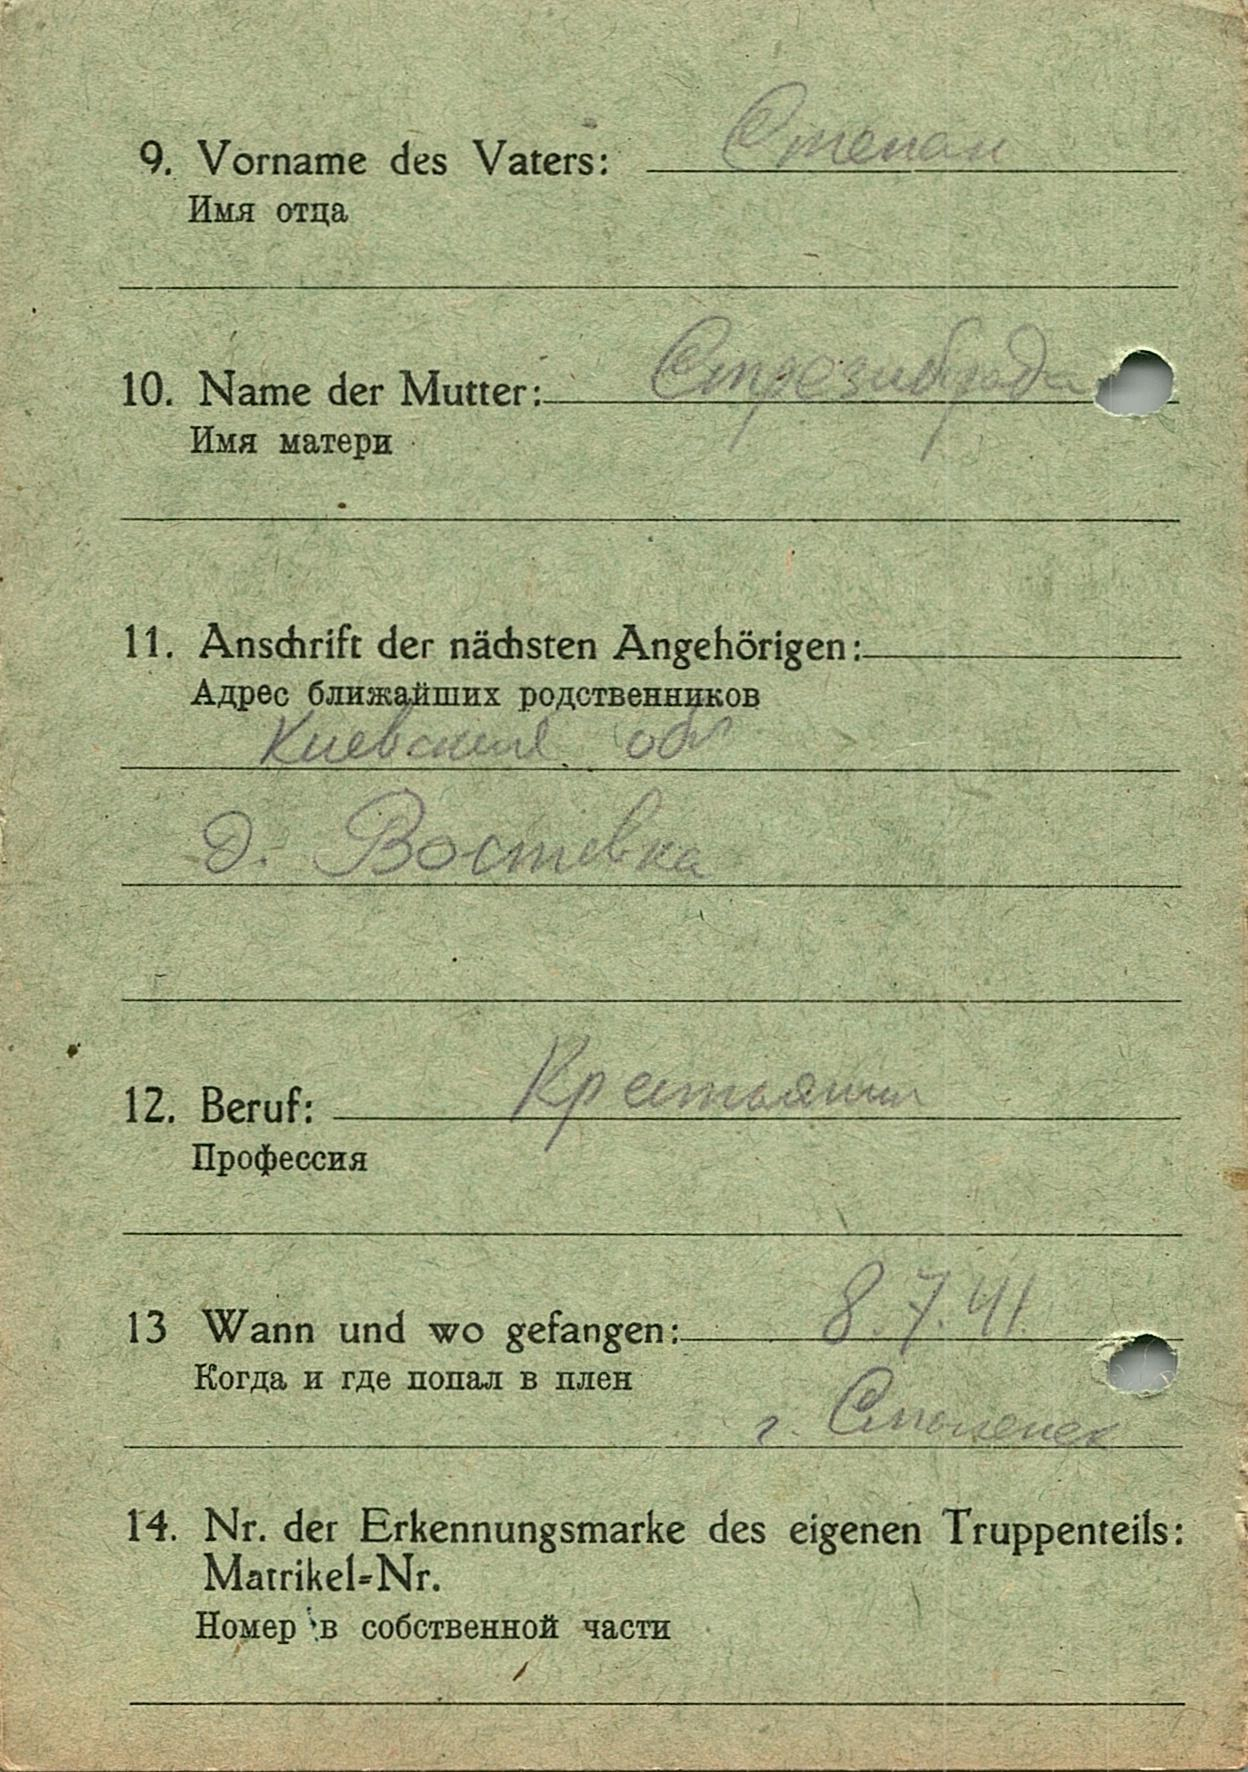 9. Vorname des Vaters: Степан
Имя отца
10. Name der Mutter:
Имя матери
11. Anschrift der nächsten Angehörigen:
Адрес ближайших родственников
Киевския обл
д. Востевка
12. Beruf: Крестьянин
Профессия
13 Wann und wo gefangen: 8.7.41
Когда и где попал в плен
г. Смоленск
14. Nr. der Erkennungsmarke des eigenen Truppenteils:
Matrikel-Nr.
Номер в собственной части